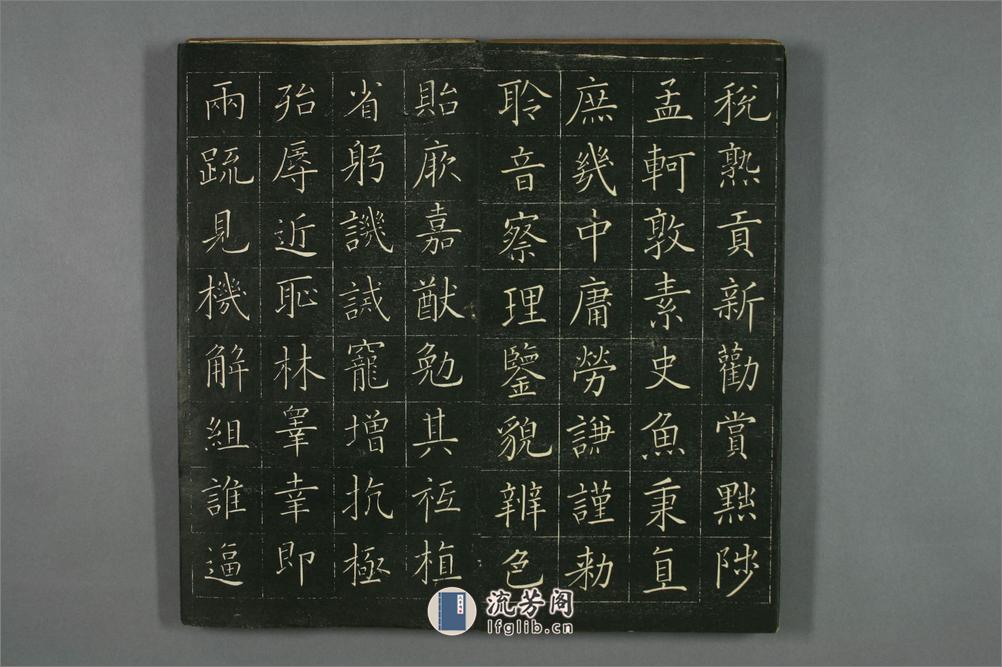 稅熟貢新勸賞黜陟
孟軻敦素史魚秉直
庶幾中庸勞謙謹勅
聆音察理鑒貌辨色
貽厥嘉猷勉其祗植
省躬譏誡寵增抗極
殆辱近恥林睪幸即
兩疏見機解組誰逼
流芳阁
lfglib.cn